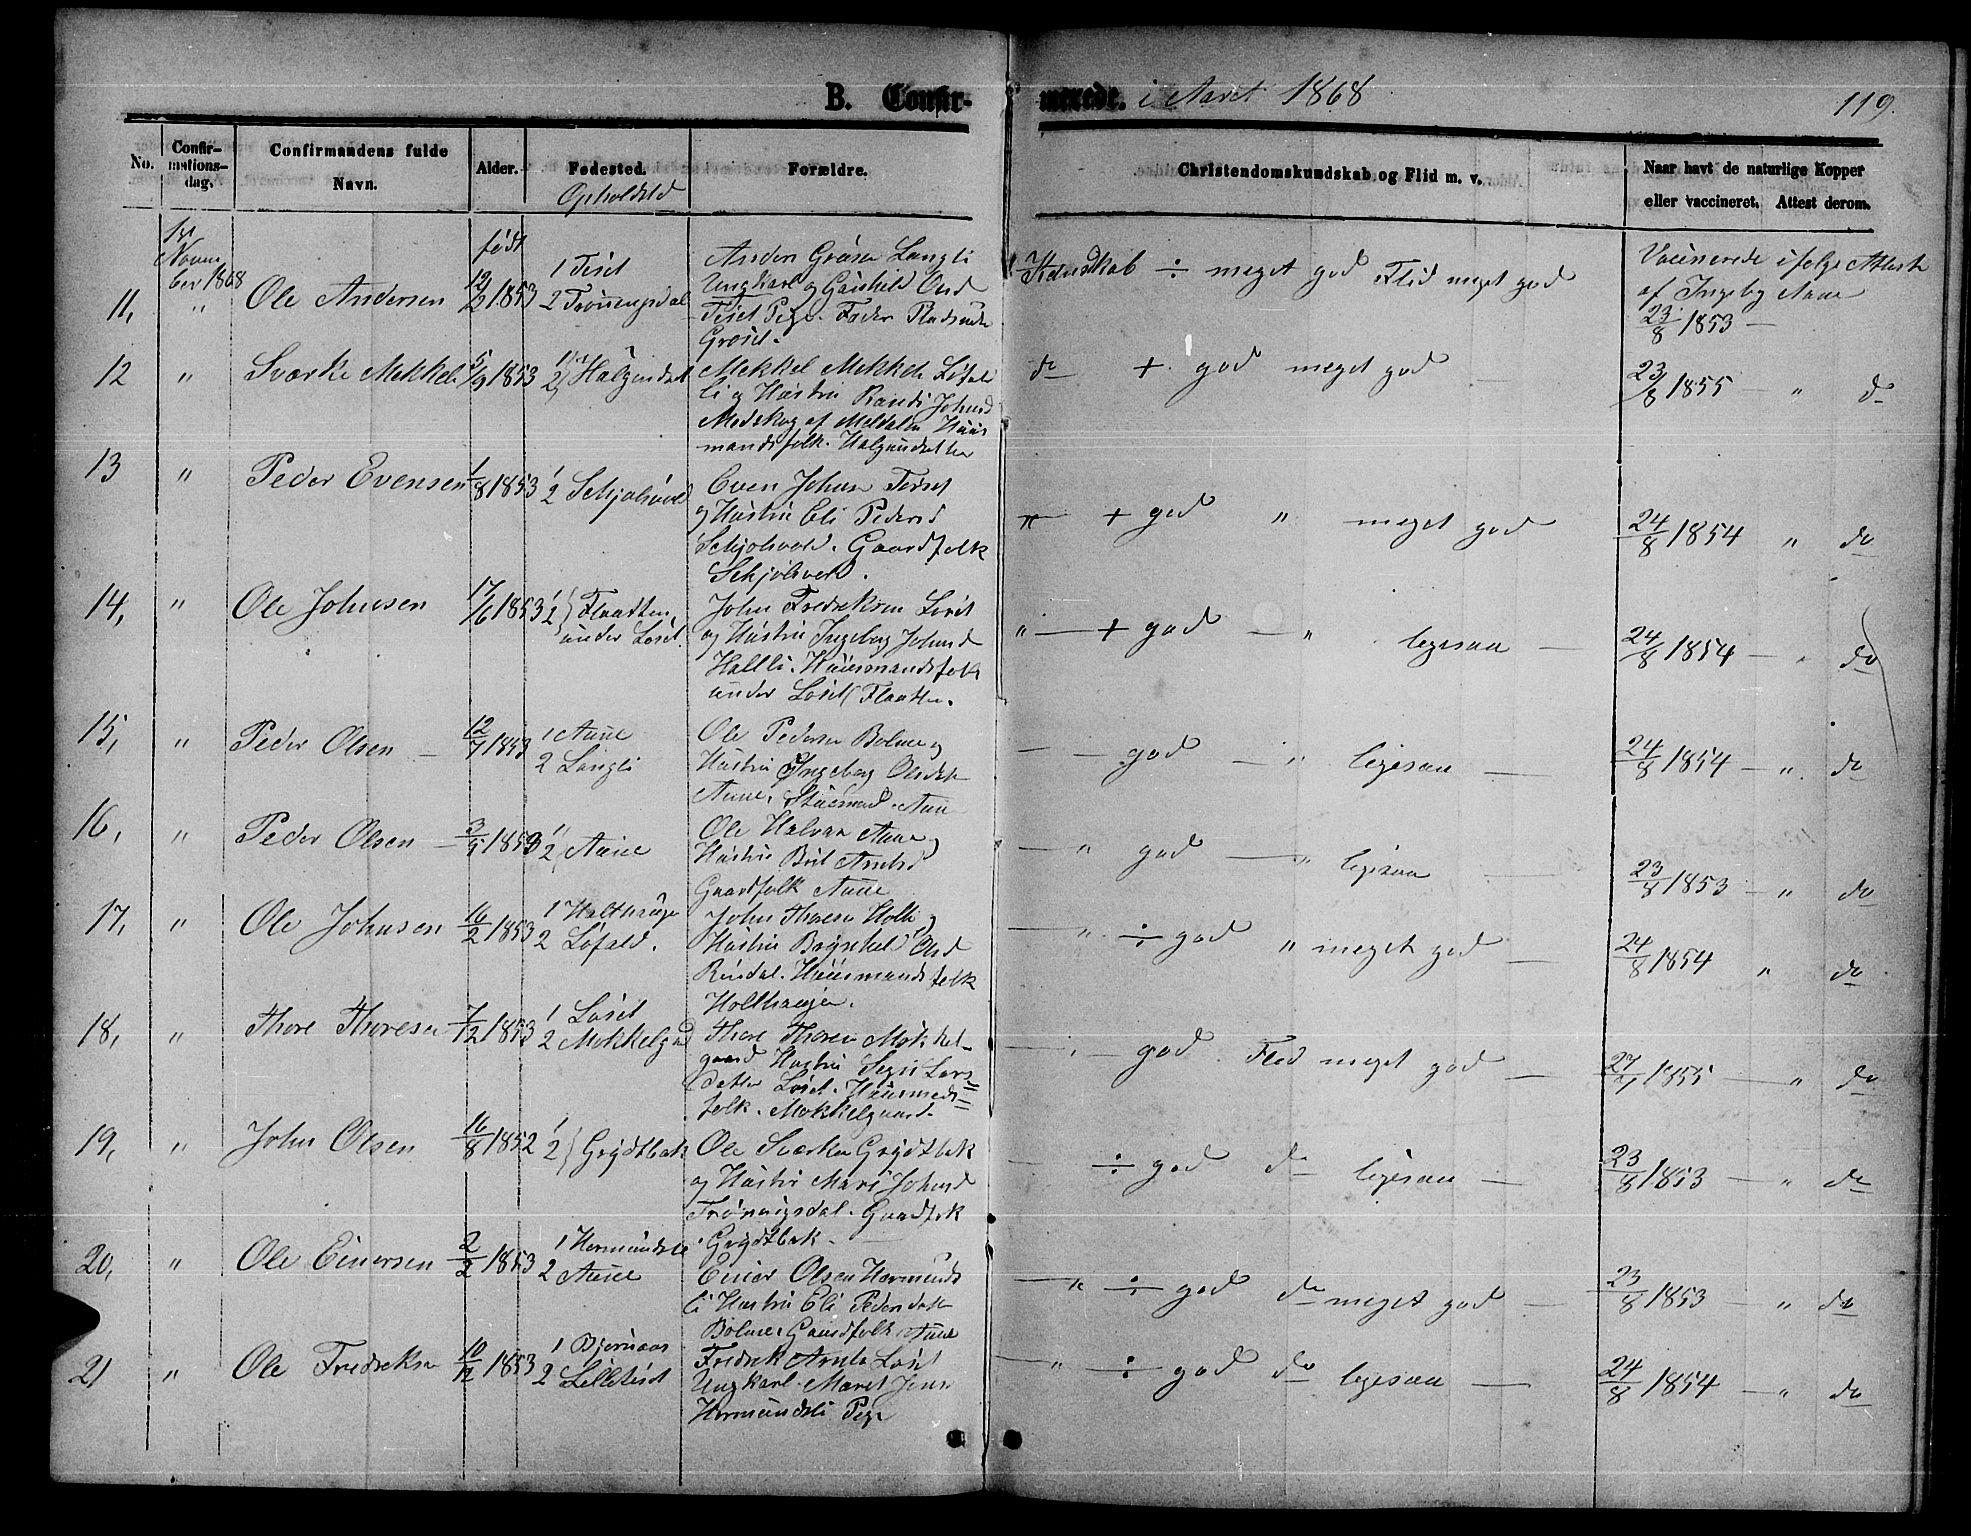 B. Confir- merede. i Aaret 1868
119.
No.
Confir-
mations-
dag.
Confirmandens fulde
Navn.
Alder.
Fødested.
Opholdstd
Forældre.
Christendomskundskab og Flid m. v.
Naar havt de naturlige Kopper
eller vaccineret. Attest derom.
1st
Novem
ber 1868
født
11, " Ole Andersen 12/2 1853
1 Teset
2 Trønengsdal
Anders Langli
Ungkarl og Gunhild Olsd
Teset Pige. Fader
Groset.
Kundskab ÷ meget god Flid meget god
Vacinerede ifølge Attest
af Ingebg Aune
23/8 1853 —
12 " Sværke Mekkels 5/9 1853
1
2 Halgundset
Mekkel Mekkels Løfald
li og Hustru Randi Johnsd
Moskog af Meldalen Huus
mandsfolk. Halgundsetter
do + god meget god —
23/8 1855 — " do
13 " Peder Evensen 1/8 1853
1
2 Schjølsvold
Even Johnsen Teset
og Hustru Eli Pedersd
Schjølsvold. Gaardfolk
Schjølsvold.
" + god " meget god
24/8 1854 " do
14, " Ole Johnsen 17/6 1853
1
2 Flaatten
under Løset.
John Fredriksen Løset
og Hustru Ingeborg Johnsd
Hallli. Huusmandsfolk
under Løset Flaatten.
" — + god — " ligesaa —
24/8 1854 — " do
15, " Peder Olsen — 12/7 1853
1 Aune
2 Langli
Ole Pedersen Bolme og
Hustru Ingeborg Olsdat
Aune. Huusmd. Aune
— — god — " ligesaa —
24/8 1854 — ". do
16, " Peder Olsen — 3/5 1853
1
2 Aune
Ole Halvors Aune og
Hustru Brit Arntsd
Gaardfolk Aune
— " god — " ligesaa —
23/8 1853 — " do
17, " Ole Johnsen 16/2 1853
1 Holthauge
2 Løfald.
John Thoresen Holte og
Hustru Olsd
Rindal. Huusmandsfolk
Holthaugen.
— " ÷ god " meget god —
24/8 1854 " do
18, " Thore Thoresen 7/12 1853
1 Løset
2 Mokkelgrd
Thore Thoresen Mokkel-
gaard Hustru Segri Lars=
datter Løset. Huusmds=
folk. Mokkelgaard.
— " — god. Flid meget god —
27/7 1855 — " do
19, " John Olsen 16/8 1852
1
2 Grydtbak
Ole Sværksen Grydtbak
og Hustru Mari Johnsd
Trønningsdal. Gaardfolk
Grydtbak. —
— ÷ god do ligesaa —
23/8 1853 — " do
20, " Ole Einersen 2/2 1853
1 Hermundsli
2 Aune
Einar Olsen Hermunds
li Hustru Eli Pedersdatt
Bolme. Gaardfolk Aune
— " ÷ god do meget god —
23/8 1853 — " do
21 " Ole Fredriksen 10/12 1853
1 Bjørnaas
2 Lilleteset
Fredrik Arntsen Løset
Ungkarl. Maret Jens
Hermundsli Pige
— " ÷ god do ligesaa —
24/8 1854 — " do